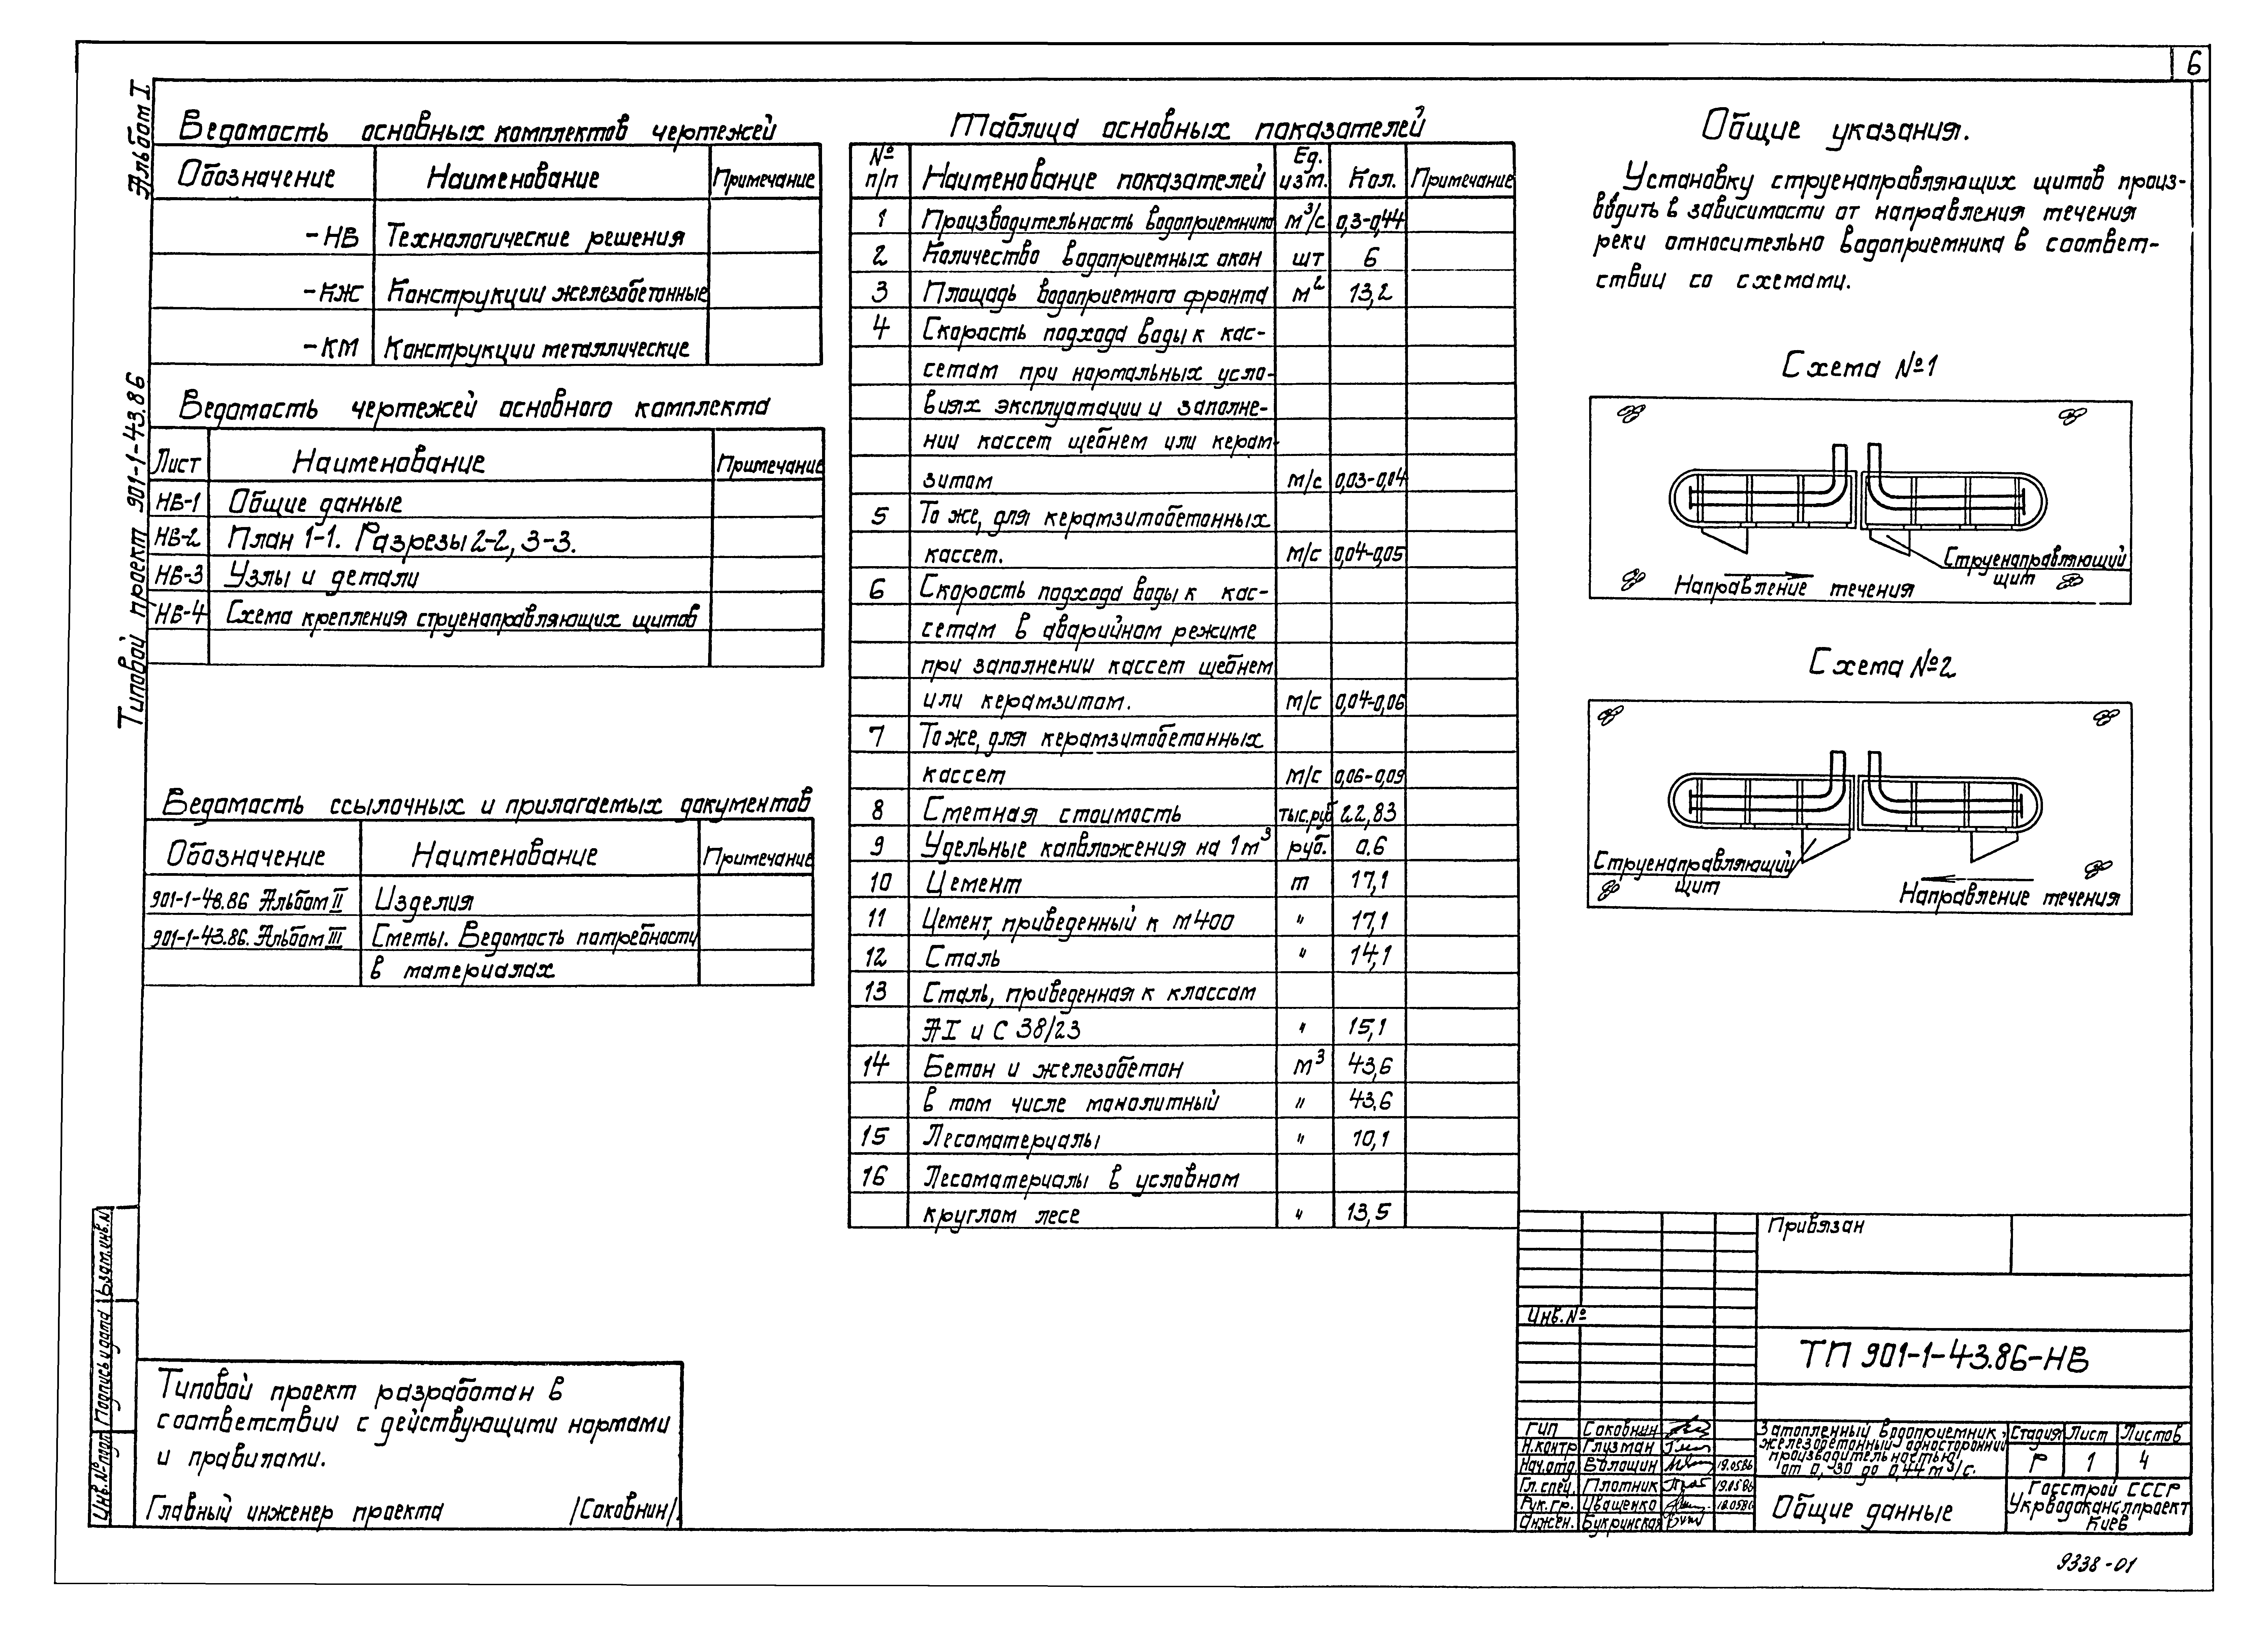 6
Альбом I
Типовой проект 901-1-43.86
Ведомость основных комплектов чертежей
Обозначение Наименование Примечание
-НВ Технологические решения
-КЖ Конструкции железобетонные
-КМ Конструкции металлические
Ведомость чертежей основного комплекта
Лист Наименование Примечание
НВ-1 Общие данные
НВ-2 План 1-1. Разрезы 2-2, 3-3.
НВ-3 Узлы и детали
НВ-4 Схема крепления струенаправляющих щитов
Ведомость ссылочных и прилагаемых документов
Обозначение Наименование Примечание
901-1-48.86 Альбом II Изделия
901-1-43.86. Альбом III Сметы. Ведомость потребности
в материалах
Типовой проект разработан в
соответствии с действующими нормами
и правилами.
Главный инженер проекта /Соковнин/
Инв.№ подл Подпись и дата Взам.инв.N
Таблица основных показателей
№ п/п Наименование показателей Ед. изм. Кол. Примечание
1 Производительность водоприемника м³/с 0,3-0,44
2 Количество водоприемных окон шт 6
3 Площадь водоприемного фронта м² 13,2
4 Скорость подхода воды к кас-
сетам при нормальных усло-
виях эксплуатации и заполне-
нии кассет щебнем или керам-
зитом м/с 0,03-0,04
5 То же, для керамзитобетонных
кассет. м/с 0,04-0,05
6 Скорость подхода воды к кас-
сетам в аварийном режиме
при заполнении кассет щебнем
или керамзитом. м/с 0,04-0,06
7 То же, для керамзитобетонных
кассет м/с 0,06-0,09
8 Сметная стоимость тыс.руб 22,83
9 Удельные капвложения на 1м³ руб. 0.6
10 Цемент т 17,1
11 Цемент, приведенный к М400 " 17,1
12 Сталь " 14,1
13 Сталь, приведенная к классам
АI и С 38/23 " 15,1
14 Бетон и железобетон м³ 43,6
в том числе монолитный " 43,6
15 Лесоматериалы " 10,1
16 Лесоматериалы в условном
круглом лесе " 13,5
Общие указания.
Установку струенаправляющих щитов произ-
водить в зависимости от направления течения
реки относительно водоприемника в соответ-
ствии со схемами.
Схема №1
Струенаправляющий
щит
Направление течения
Схема №2
Струенаправляющий
щит
Направление течения
Привязан
Инв.№
ТП 901-1-43.86-НВ
ГИП Соковнин
Н.контр Глузман
Нач.отд. Волошин 19.05.86
Гл.спец. Плотник 19.05.86
Рук.гр. Иващенко
Инжен. Букринская
Затопленный водоприемник
железобетонный односторонний
производительностью
от 0,30 до 0,44 м³/с.
Стадия Лист Листов
Р 1 4
Общие данные
Госстрой СССР
Укрводоканалпроект
Киев
9338-01